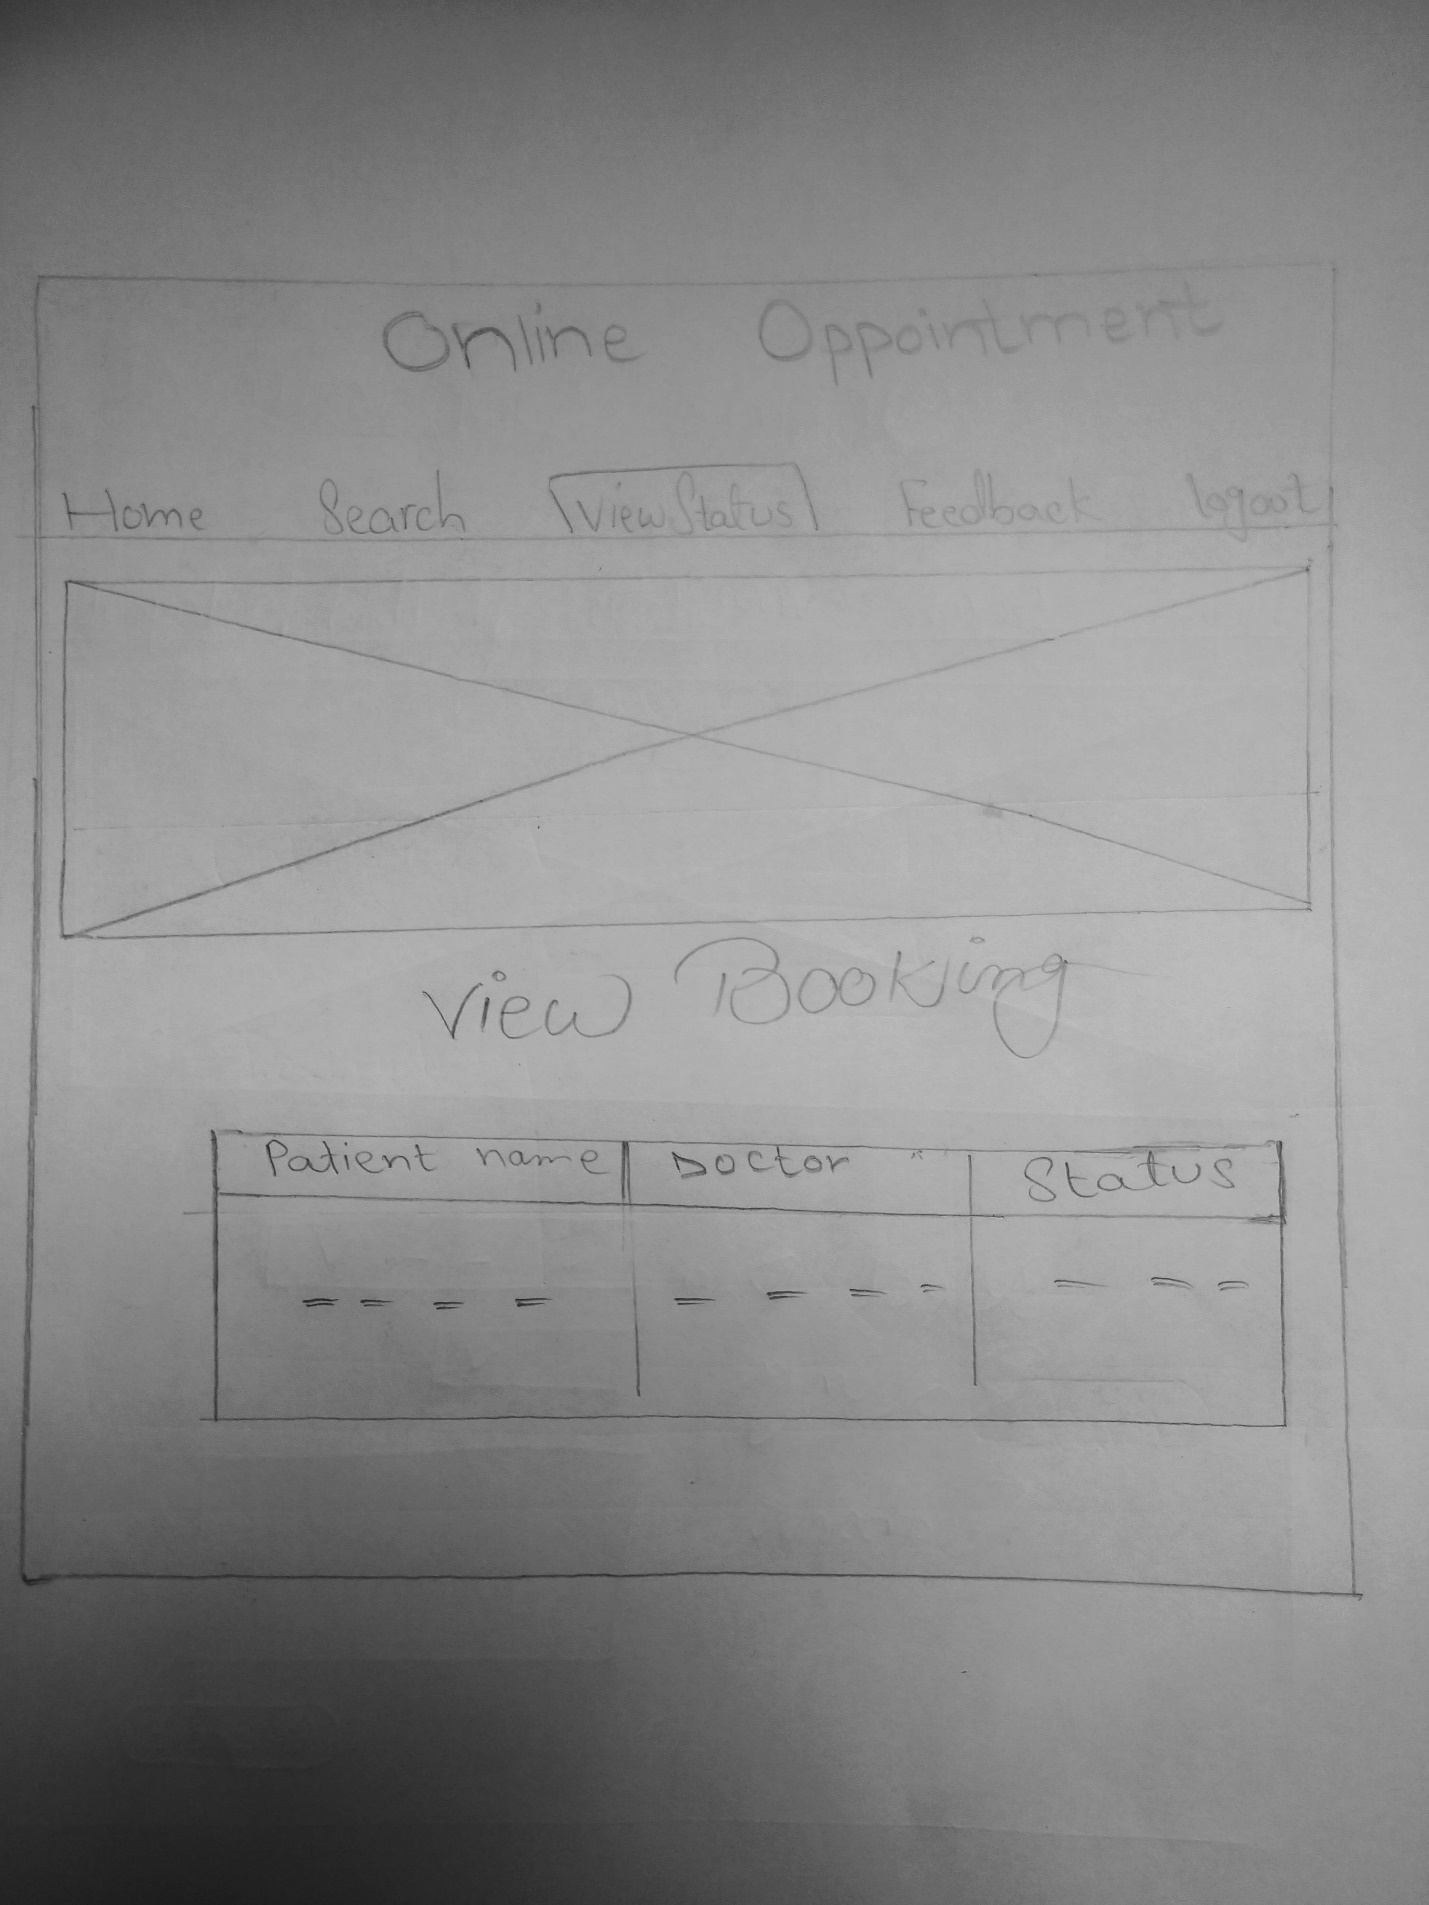 Online Oppointment
Home Search View Status Feedback logout
View Booking
Patient name Doctor Status